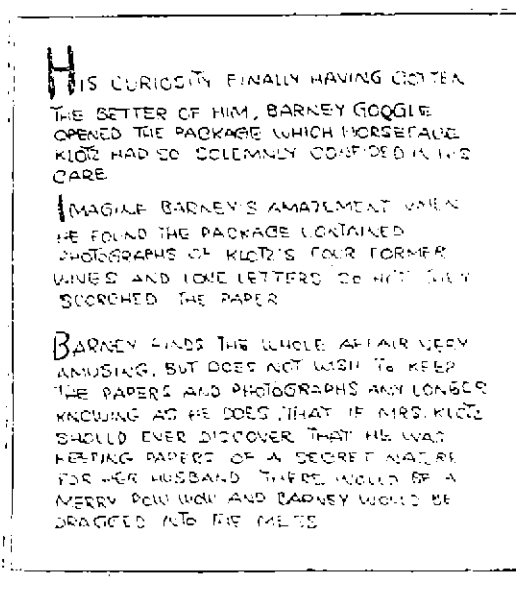 HIS CURIOSITY FINALLY HAVING GOTTEN
THE BETTER OF HIM, BARNEY GOOGLE
OPENED THE PACKAGE WHICH HORSEFACE
KLOTZ HAD SO SOLEMNLY CONFIDED IN HIS
CARE
IMAGINE BARNEY'S AMAZEMENT WHEN
HE FOUND THE PACKAGE CONTAINED
PHOTOGRAPHS OF KLOTZ'S FOUR FORMER
WIVES AND LOVE LETTERS SO HOT THEY
SCORCHED THE PAPER
BARNEY FINDS THE WHOLE AFFAIR VERY
AMUSING, BUT DOES NOT WISH TO KEEP
THE PAPERS AND PHOTOGRAPHS ANY LONGER
KNOWING AS HE DOES, THAT IF MRS. KLOTZ
SHOULD EVER DISCOVER THAT HE WAS
KEEPING PAPERS OF A SECRET NATURE
FOR HER HUSBAND THERE WOULD BE A
MERRY POW WOW AND BARNEY WOULD BE
DRAGGED INTO THE MESS